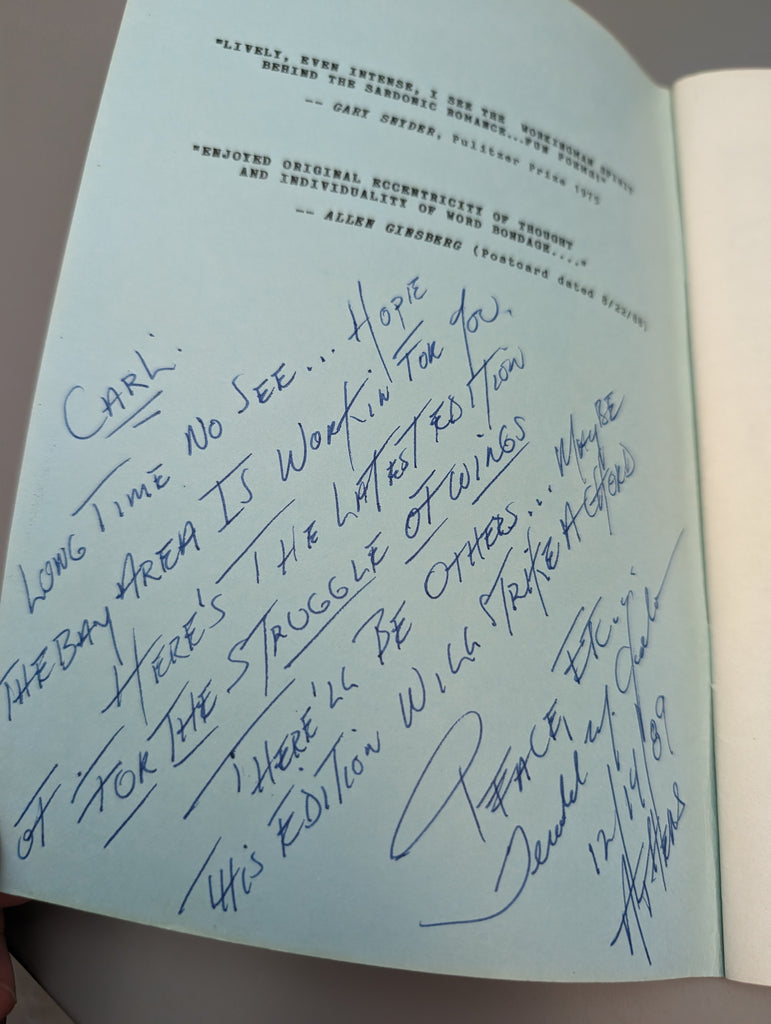 "LIVELY, EVEN INTENSE, I SEE THE WORKINGMAN SPIRIT
BEHIND THE SARDONIC ROMANCE...FUN POEMS!"
-- GARY SNYDER, Pulitzer Prize 1975
"ENJOYED ORIGINAL ECCENTRICITY OF THOUGHT
AND INDIVIDUALITY OF WORD BONDAGE...."
-- ALLEN GINSBERG (Postcard dated 8/22/88)
CARL:
LONG TIME NO SEE... HOPE
THE BAY AREA IS WORKIN' FOR YOU.
HERE'S THE LATEST EDITION
OF FOR THE STRUGGLE OF WINGS
THERE'LL BE OTHERS... MAYBE
THIS EDITION WILL STRIKE A CHORD
PEACE, ETC...
12/14/89
ATHENS